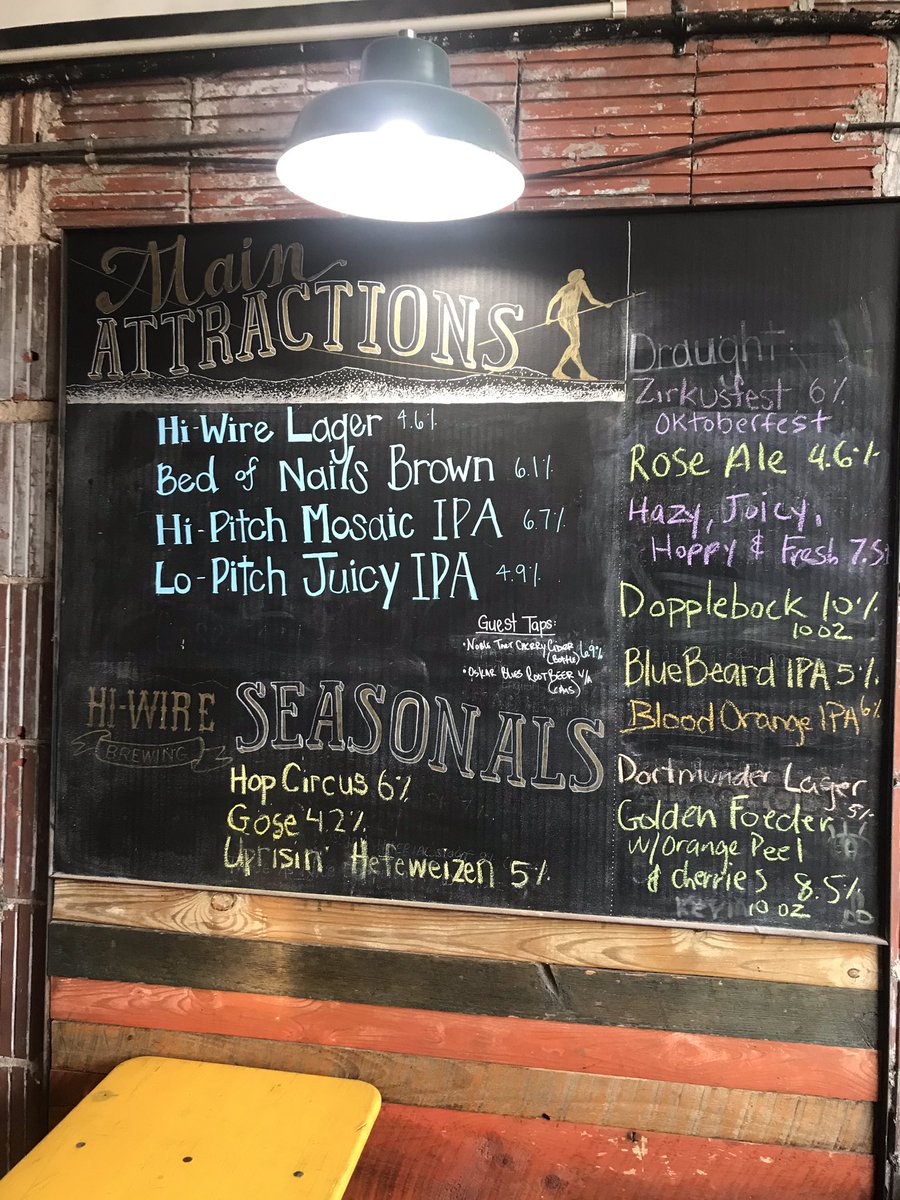 Main
ATTRACTIONS
Hi-Wire Lager 4.6%
Bed of Nails Brown 6.1%
Hi-Pitch Mosaic IPA 6.7%
Lo-Pitch Juicy IPA 4.9%
Guest Taps:
• Noble Tart Cherry Cider 6.9%
(Bottle)
• Oskar Blues Root Beer
(cans)
HI-WIRE
BREWING
SEASONALS
Hop Circus 6%
Gose 4.2%
Uprisin' Hefeweizen 5%
Draught:
Zirkusfest 6%
Oktoberfest
Rose Ale 4.6%
Hazy, Juicy,
Hoppy & Fresh 7.5
Dopplebock 10%
10 oz
BlueBeard IPA 5%
Blood Orange IPA 6%
Dortmunder Lager
5%
Golden Foeder
w/Orange Peel
& cherries 8.5%
Kevin 10 oz